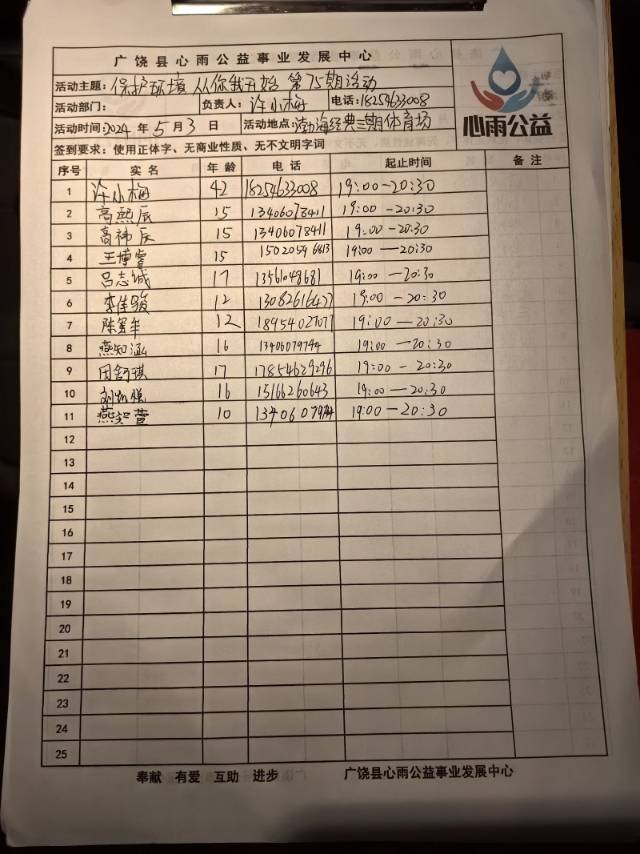 广饶县心雨公益事业发展中心
活动主题：保护环境 从你我开始 第75期活动
活动部门： 负责人：许小梅 电话：18254633008
活动时间：2024年5月3日 活动地点：渤海经典三期体育场
签到要求：使用正体字、无商业性质、无不文明字词
心雨公益
序号 实名 年龄 电话 起止时间 备注
1 许小梅 42 18254633008 19:00-20:30
2 高熙辰 15 13406078411 19:00-20:30
3 高祎辰 15 13406078411 19:00-20:30
4 王博睿 15 19:00-20:30
5 吕志诚 17 13561048681 19:00-20:30
6 李佳骏 12 19:00-20:30
7 陈 12 19:00-20:30
8 燕知涵 16 19:00-20:30
9 田舒琪 17 17854629296 19:00-20:30
10 刘 16 15166260643 19:00-20:30
11 燕知萱 10 19:00-20:30
12
13
14
15
16
17
18
19
20
21
22
23
24
25
奉献 有爱 互助 进步 广饶县心雨公益事业发展中心